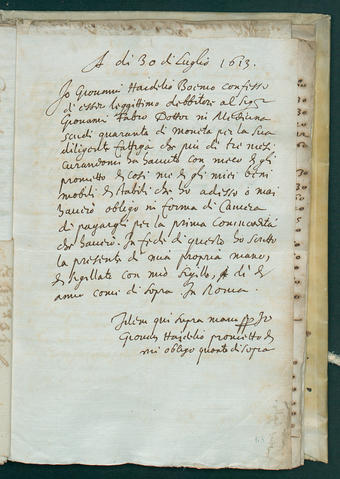 A di 30 di Luglio 1613.
Io Giovanni Haidelio Boemo confesso
di esser leggittimo debbitore al Sigr
Giovanni Fabro Dottor in Medicina
scudi quaranta di moneta per la sua
diligente fattiga che piu di tre mesi
curandomi ha havuta con meco et gli
prometto et cosi me et gli miei beni
mobili et stabili che ho adesso o mai
haverò obligo in forma di Camera
di pagargli per la prima comodità
che haverò. In fede di questo ho scritto
la presente di mia propria mano,
et sigillata con mio sigillo, A di et
anno come di sopra. In Roma.
Idem qui supra manu pp Io
Giovani Haidelio prometto et
mi obligo quanto di sopra